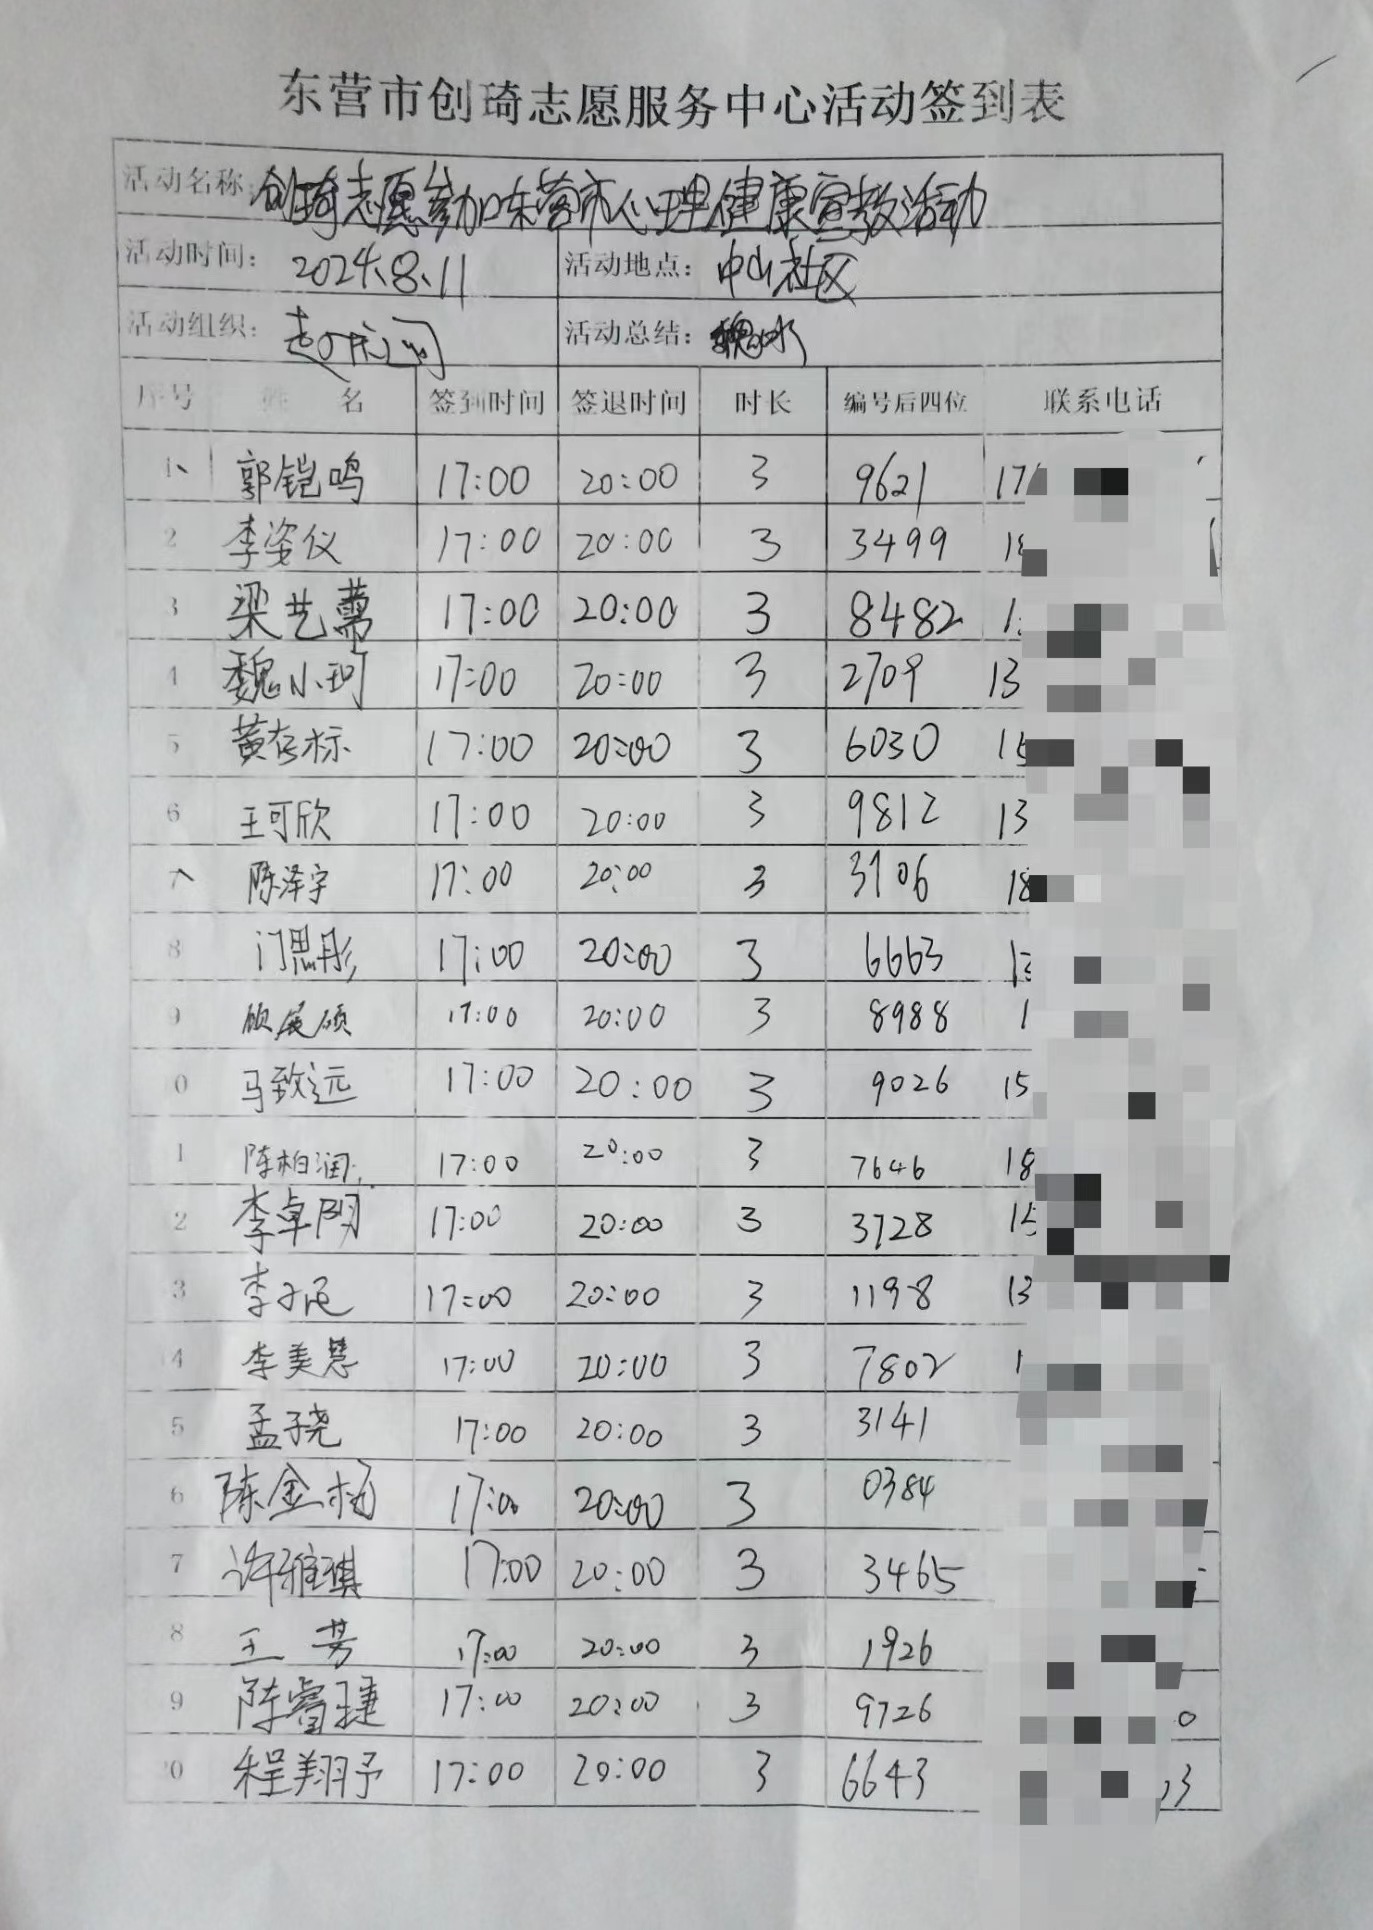 东营市创琦志愿服务中心活动签到表
活动名称：创琦志愿参加东营市心理健康宣教活动
活动时间： 2024.8.11 活动地点： 中山社区
活动组织： 活动总结： 魏
序号 姓 名 签到时间 签退时间 时长 编号后四位 联系电话
1、 郭铠鸣 17:00 20:00 3 9621 17
2 李姿仪 17:00 20:00 3 3499 18
3 梁艺 17:00 20:00 3 8482 1
4 魏小珂 17:00 20:00 3 2709 13
5 黄存标 17:00 20:00 3 6030 15
6 王可欣 17:00 20:00 3 9812 13
7 陈泽宇 17:00 20:00 3 3106 18
8 门思彤 17:00 20:00 3 6663 13
9 顾展硕 17:00 20:00 3 8988 1
0 马致远 17:00 20:00 3 9026 15
1 陈柏润 17:00 20:00 3 7646 18
2 李卓阴 17:00 20:00 3 3728 15
3 李子 17:00 20:00 3 1198 13
14 李美慧 17:00 20:00 3 7802 1
5 孟子尧 17:00 20:00 3 3141
6 陈金杨 17:00 20:00 3 0384
7 许雅琪 17:00 20:00 3 3465
8 王 芳 17:00 20:00 3 1926
9 陈睿捷 17:00 20:00 3 9726 0
20 程翔予 17:00 20:00 3 6643 53